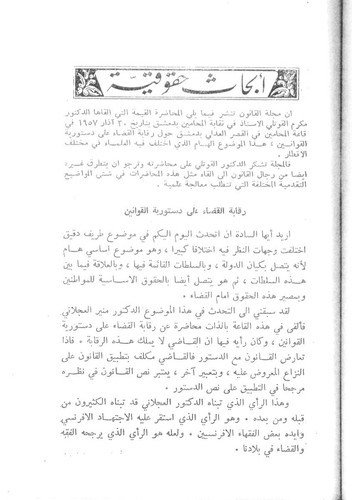 أبحاث حقوقية
ان مجلة القانون تنشر فيما يلي المحاضرة القيمة التي القاها الدكتور
مكرم القوتلي الاستاذ في نقابة المحامين بدمشق بتاريخ ٢٠ آذار ١٩٥٧ في
قاعة المحامين في القصر العدلي بدمشق حول رقابة القضاء على دستورية
القوانين ، هذا الموضوع الهام الذي اختلف فيه العلماء في مختلف
الاقطار .
فالمجلة تشكر الدكتور القوتلي على محاضرته وترجو ان يتطرق غيره،
ايضا من رجال القانون الى القاء مثل هذه المحاضرات في شتى المواضيع
التقدمية المختلفة التي تتطلب معالجة علمية .
رقابة القضاء على دستورية القوانين
اريد أيها السادة ان اتحدث اليوم اليكم في موضوع طريف دقيق
اختلفت وجهات النظر فيه اختلافا كبيرا ، وهو موضوع اساسي هام
لأنه يتصل بكيان الدولة ، وبالسلطات القائمة فيها ، وبالعلاقة فيما بين
هذه السلطات ، ثم هو يتصل أيضا بالحقوق الاساسية للمواطنين
وبمصير هذه الحقوق امام القضاء .
لقد سبقني الى التحدث في هذا الموضوع الدكتور منير العجلاني
فألقى في هذه القاعة بالذات محاضرة عن رقابة القضاء على دستورية
القوانين ، وكان رأيه فيها ان القاضي لا يملك هذه الرقابة . فاذا
تعارض القانون مع الدستور فالقاضي مكلف بتطبيق القانون على
النزاع المعروض عليه ، وبتعبير آخر ، يعتبر نص القانون في نظره
مرجحا في التطبيق على نص الدستور .
وهذا الرأي الذي تبناه الدكتور العجلاني قد تبناه الكثيرون من
قبله ومن بعده . وهو الرأي الذي استقر عليه الاجتهاد الافرنسي
وايده بعض الفقهاء الافرنسيين . ولعله هو الرأي الذي يرجحه الفقه
والقضاء في بلادنا .